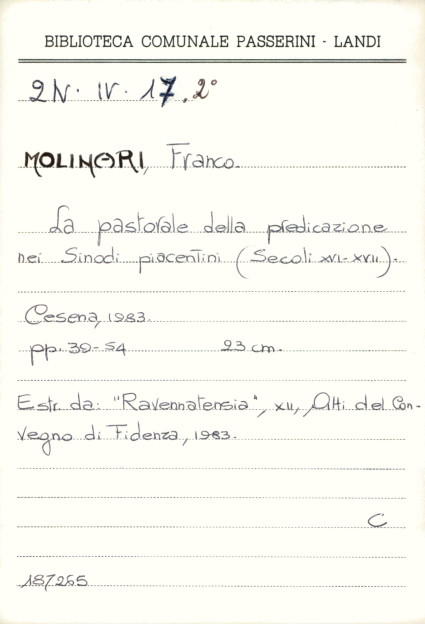 BIBLIOTECA COMUNALE PASSERINI - LANDI
2N. IV. 17, 2°
MOLINARI, Franco.
La pastorale della predicazione
nei Sinodi piacentini (Secoli XVI-XVII).
Cesena, 1983.
pp. 39-54 23 cm.
Estr. da: "Ravennatensia", XII, Atti del Con-
vegno di Fidenza, 1983.
C
187265